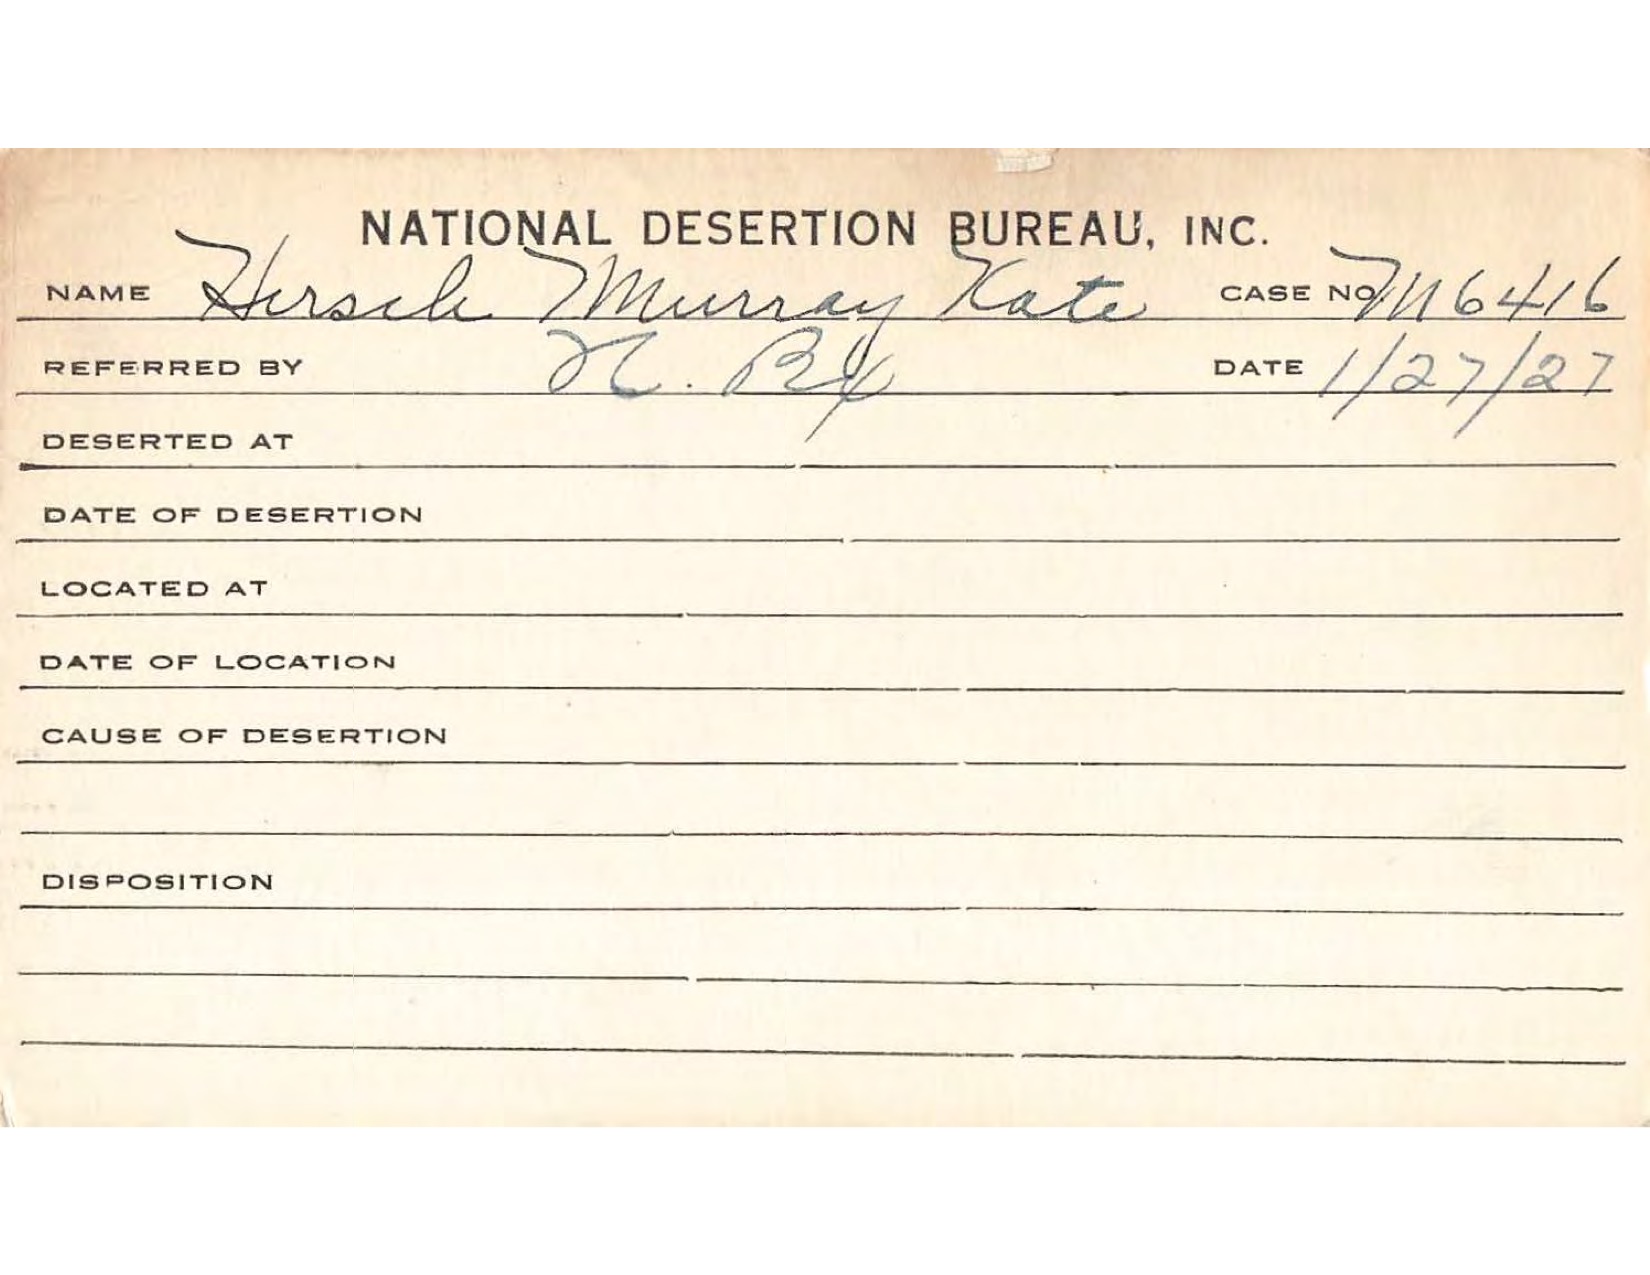 NATIONAL DESERTION BUREAU, INC.
NAME Hersch Murray Kate CASE NO. M6416
REFERRED BY N. By DATE 1/27/27
DESERTED AT
DATE OF DESERTION
LOCATED AT
DATE OF LOCATION
CAUSE OF DESERTION
DISPOSITION